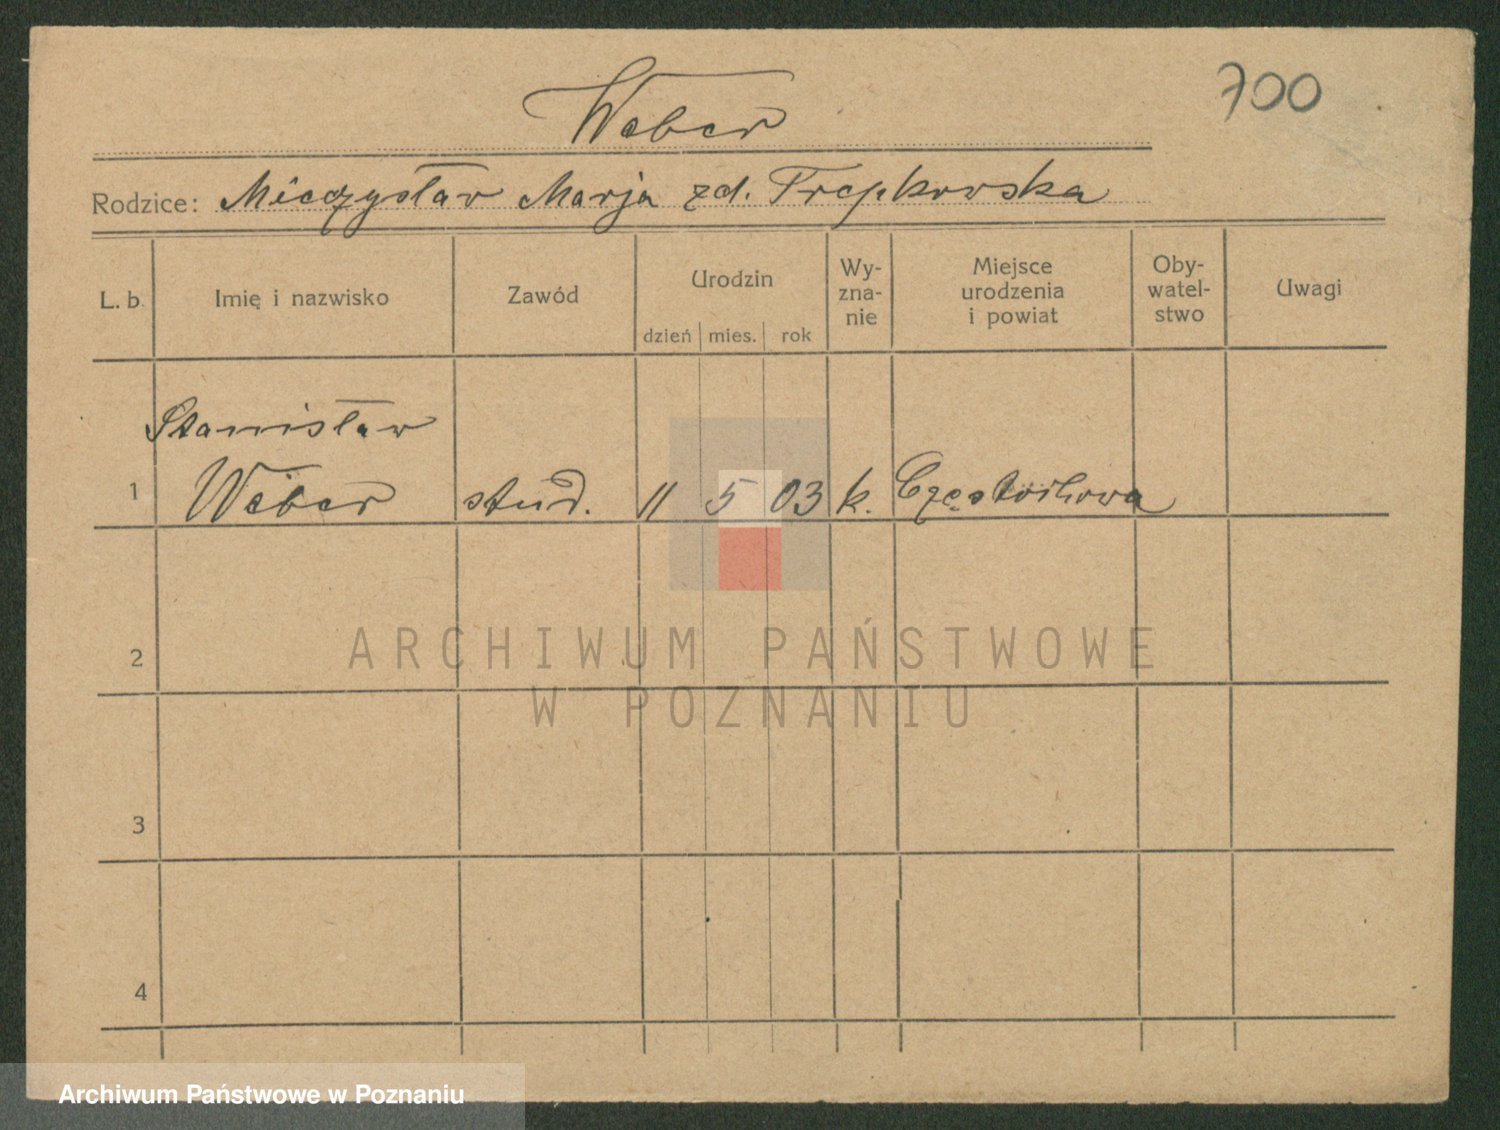 700
Weber
Rodzice: Mieczysław Marja zd.
L. b. Imię i nazwisko Zawód Urodzin dzień mies. rok Wy-zna-nie Miejsce urodzenia i powiat Oby-watel-stwo Uwagi
Stanisław
1 Weber stud. 11 5 03 k. Częstochowa
2
ARCHIWUM PAŃSTWOWE
W POZNANIU
3
4
Archiwum Państwowe w Poznaniu